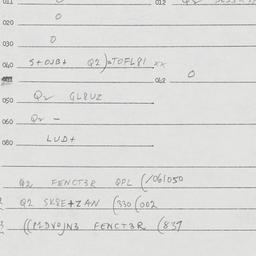 011 012
020 0
030 0
040 S+OJB+ Q2)=TOFL81 xx
042 0
050 Q2 GL8UZ
060 Q2 -
080 LUD+
Q2 FENCT3R QPL (/061050
Q2 SK8E+ZAN (330(002
((MDVOJN3 FENCT3R (837